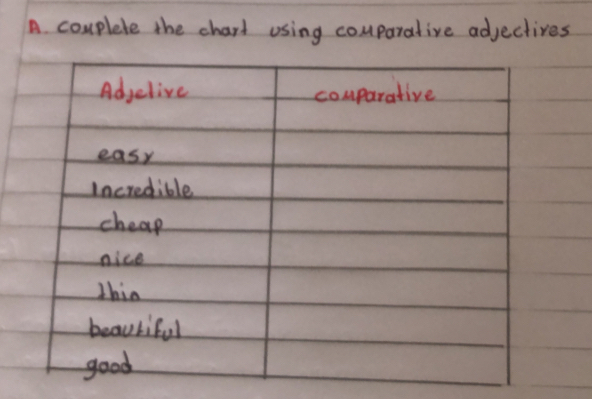 A. complete the chart using comparative adjectives
Adjetive comparative
easy
Incredible
cheap
nice
thin
beautiful
good